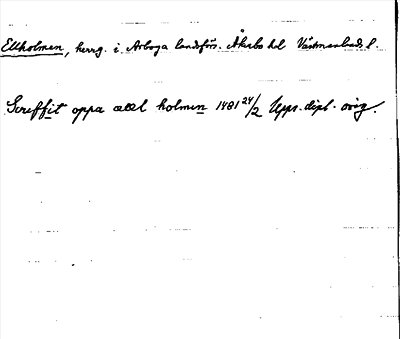 Ellholmen, herrg. i Arboga landsförs. Åkerbo hd Västmanlands l.
Screffit oppa ælel holmen 1481 24/2 Upps. dipl. orig.